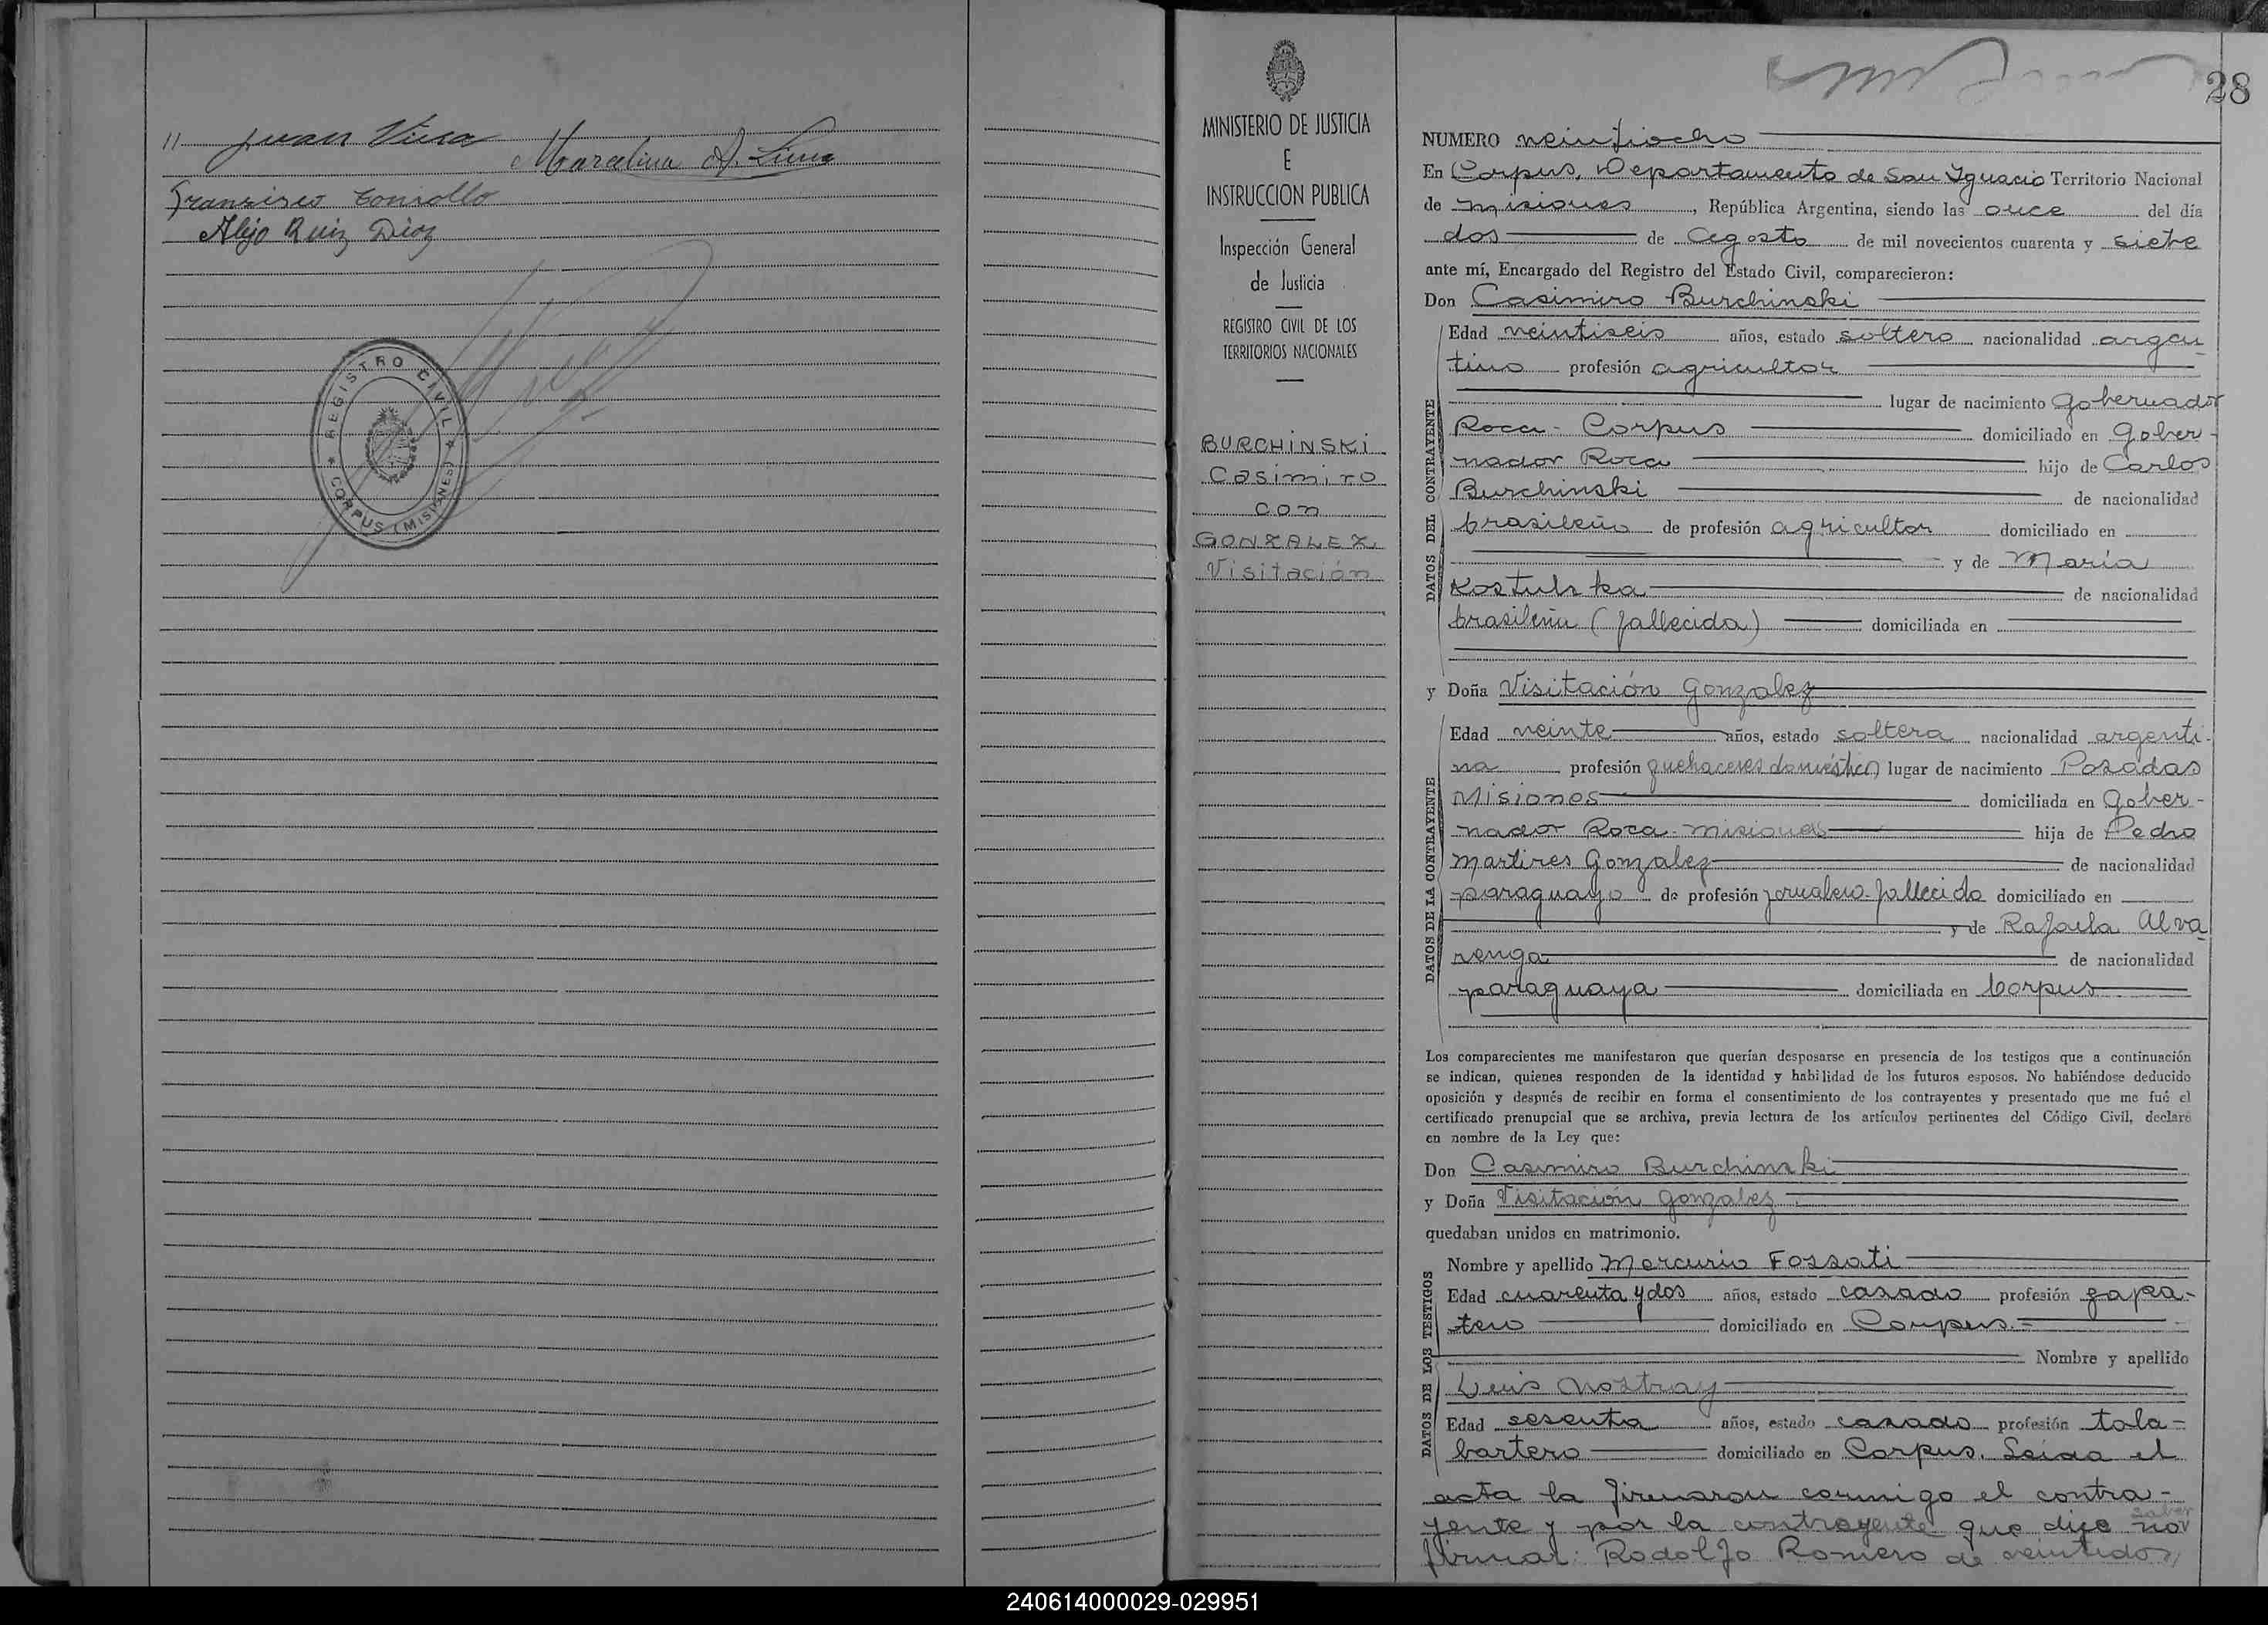 Juan
Marcelina A. Luna
Francisco
Alejo Ruiz Diaz
REGISTRO CIVIL
CORPUS (MISIONES)
MINISTERIO DE JUSTICIA
E
INSTRUCCION PUBLICA
Inspección General
de Justicia
REGISTRO CIVIL DE LOS
TERRITORIOS NACIONALES
BURCHINSKI
Casimiro
con
GONZALEZ
Visitación
28
NUMERO veintiocho
En Corpus, Departamento de San Ignacio Territorio Nacional
de Misiones, República Argentina, siendo las once del día
dos de Agosto de mil novecientos cuarenta y siete
ante mí, Encargado del Registro del Estado Civil, comparecieron:
Don Casimiro Burchinski
DATOS DEL CONTRAYENTE
Edad veintiseis años, estado soltero nacionalidad argen-
tino profesión agricultor
lugar de nacimiento Gobernador
Roca - Corpus domiciliado en Gober-
nador Roca hijo de Carlos
Burchinski de nacionalidad
brasileño de profesión agricultor domiciliado en
y de María
Kostulska de nacionalidad
brasileña (fallecida) domiciliada en
y Doña Visitación Gonzalez
DATOS DE LA CONTRAYENTE
Edad veinte años, estado soltera nacionalidad argenti-
na profesión quehaceres domésticos lugar de nacimiento Posadas
Misiones domiciliada en Gober-
nador Roca - Misiones hija de Pedro
Martires Gonzalez de nacionalidad
paraguayo de profesión jornalero - fallecido domiciliado en
y de Rafaela Alva
renga de nacionalidad
paraguaya domiciliada en Corpus
Los comparecientes me manifestaron que querían desposarse en presencia de los testigos que a continuación
se indican, quienes responden de la identidad y habilidad de los futuros esposos. No habiéndose deducido
oposición y después de recibir en forma el consentimiento de los contrayentes y presentado que me fué el
certificado prenupcial que se archiva, previa lectura de los artículos pertinentes del Código Civil, declaro
en nombre de la Ley que:
Don Casimiro Burchinski
y Doña Visitación Gonzalez
quedaban unidos en matrimonio.
DATOS DE LOS TESTIGOS
Nombre y apellido Mercurio Fossati
Edad cuarenta y dos años, estado casado profesión zapa-
tero domiciliado en Corpus.-
Nombre y apellido
Luis Nostray
Edad sesenta años, estado casado profesión tala-
bartero domiciliado en Corpus. Leida el
acta la firmaron conmigo el contra-
saber
yente y por la contrayente que dijo no
firmar: Rodolfo Romero de veintidos
240614000029-029951